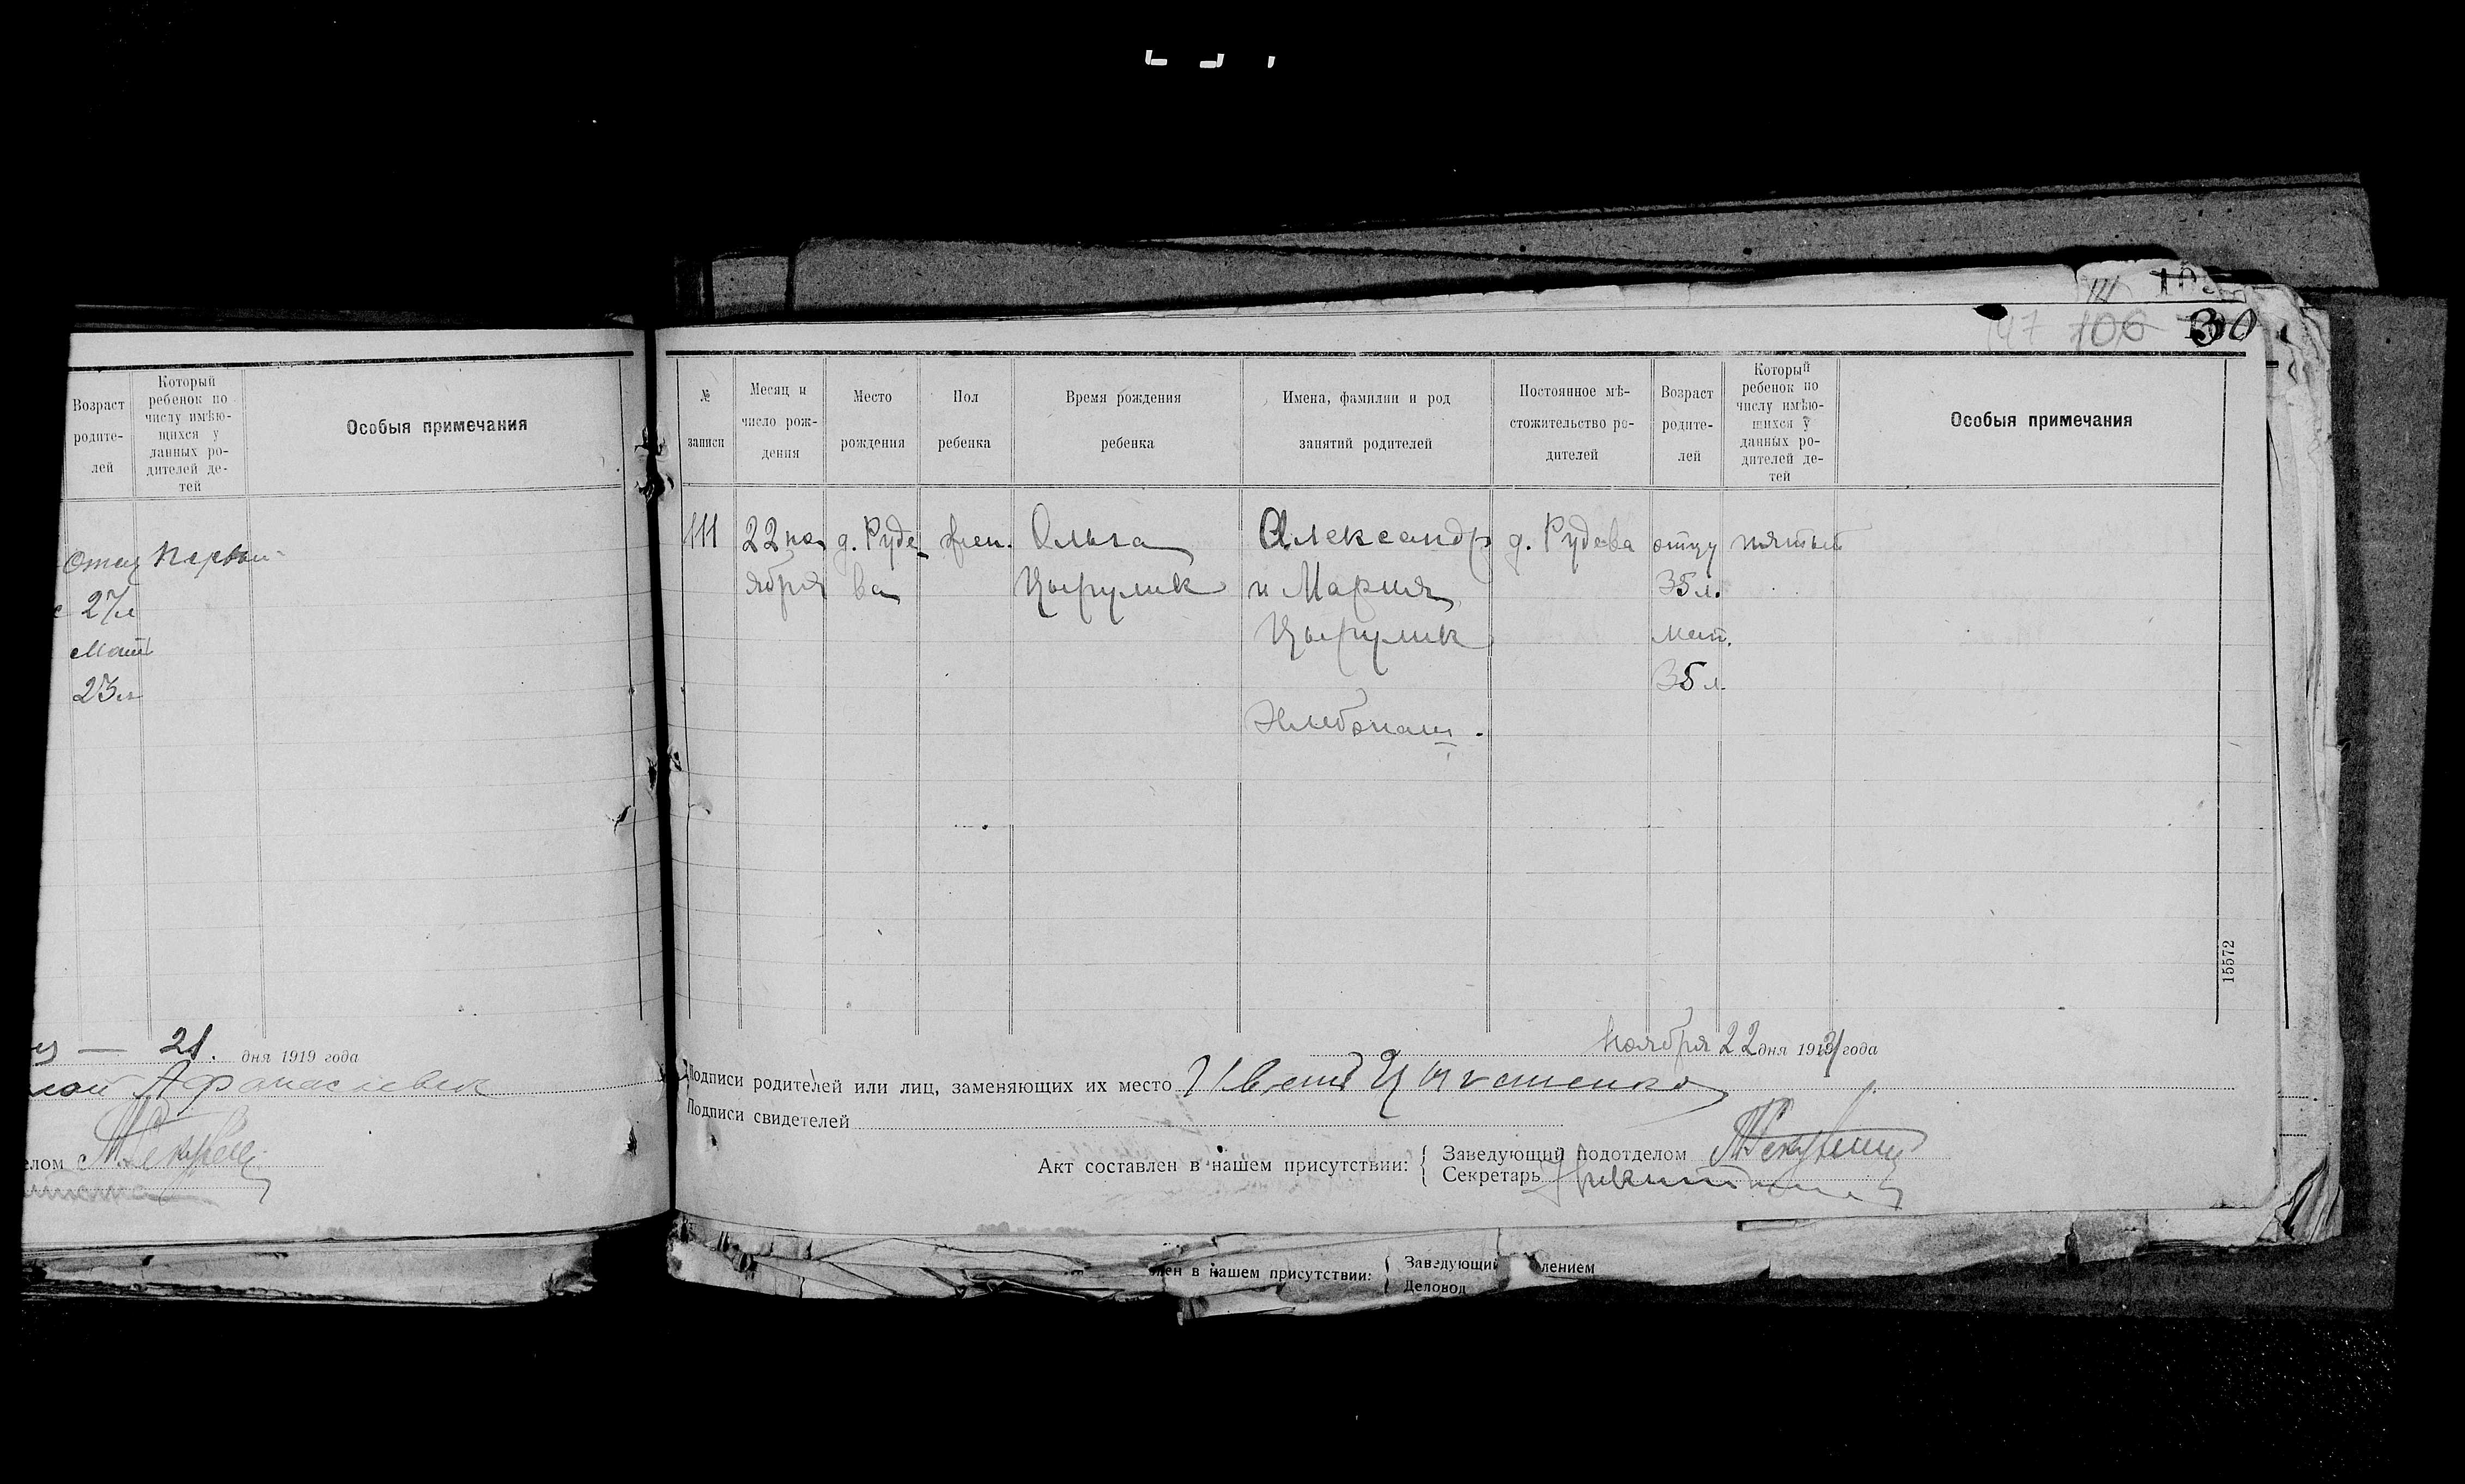 Возраст
родите-
лей
Который
ребенок по
числу имѣю-
щихся у
данных ро-
дителей де-
тей
Особыя примечания
Отец первый
27л
Мат
23л
21. дня 1919 года
Афанасиевич
147 106 30
№
записи
Месяц и
число рож-
дения
Место
рождения
Пол
ребенка
Время рождения
ребенка
Имена, фамилии и род
занятий родителей
Постоянное мѣ-
стожительство ро-
дителей
Возраст
родите-
лей
Который
ребенок по
числу имѣю-
щихся у
данных ро-
дителей де-
тей
Особыя примечания
111 22 но д. Руде- жен. Ольга Александр д. Рудева отцу пятый
ября ва Цырулик и Мария 35 л.
Цырулик мат.
35 л.
Хлебопаш.
15572
Ноября 22 дня 1919 года
Подписи родителей или лиц, заменяющих их место
Подписи свидетелей
Акт составлен в нашем присутствии: { Заведующий подотделом
Секретарь
в нашем присутствии: { Заведующий
Деловод